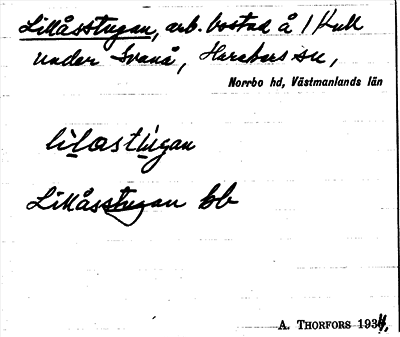 Lillåsstugan, arb. bostad å 1 Hult
under Svanå, Haraker sn,
Norrbo hd, Västmanlands län
lilåstugan
Lillåsstugan bb
A. THORFORS 1934,